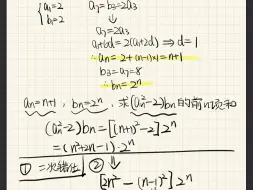 {a₁=2
b₁=2
a₇=b₃=2a₃
↓
a₁+6d=2(a₁+2d) ⇒ d=1
∴ aₙ=2+(n-1)×1=n+1
b₃=a₇=8
∴ bₙ=2ⁿ
aₙ=n+1, bₙ=2ⁿ, 求(aₙ²-2)bₙ的前n项和
(aₙ²-2)bₙ=[(n+1)²-2]2ⁿ
=(n²+2n-1)·2ⁿ
① 二次错位 ② ↓
[2n²-(n-1)²]2ⁿ